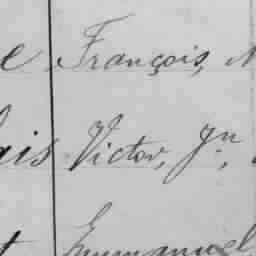 e François, N
ais Victor, Jn,
t Emmanuel